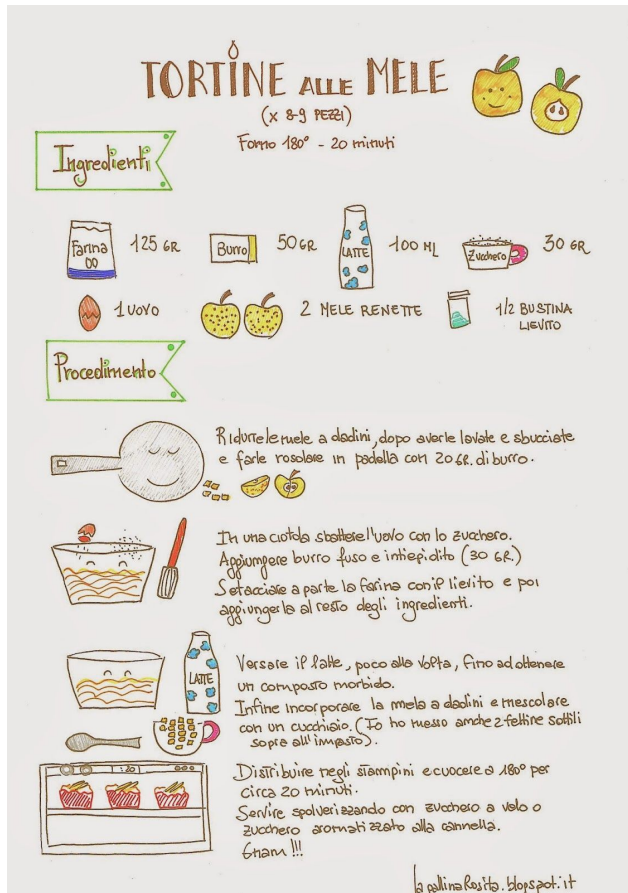 TORTINE ALLE MELE
(x 8-9 PEZZI)
Forno 180° - 20 minuti
Ingredienti
Farina 00
125 GR
Burro
50 GR
LATTE
100 ML
Zucchero
30 GR
1 UOVO
2 MELE RENETTE
1/2 BUSTINA
LIEVITO
Procedimento
Ridurre le mele a dadini, dopo averle lavate e sbucciate
e farle rosolare in padella con 20 GR. di burro.
In una ciotola sbattere l'uovo con lo zucchero.
Aggiungere burro fuso e intiepidito (30 GR.)
Setacciare a parte la farina con il lievito e poi
aggiungerla al resto degli ingredienti.
LATTE
Versare il latte, poco alla volta, fino ad ottenere
un composto morbido.
Infine incorporare la mela a dadini e mescolare
con un cucchiaio. (Io ho messo anche 2 fettine sottili
sopra all'impasto).
:20
Distribuire negli stampini e cuocere a 180° per
circa 20 minuti.
Servire spolverizzando con zucchero a velo o
zucchero aromatizzato alla cannella.
Gnam!!!
lagallinaRosita.blogspot.it